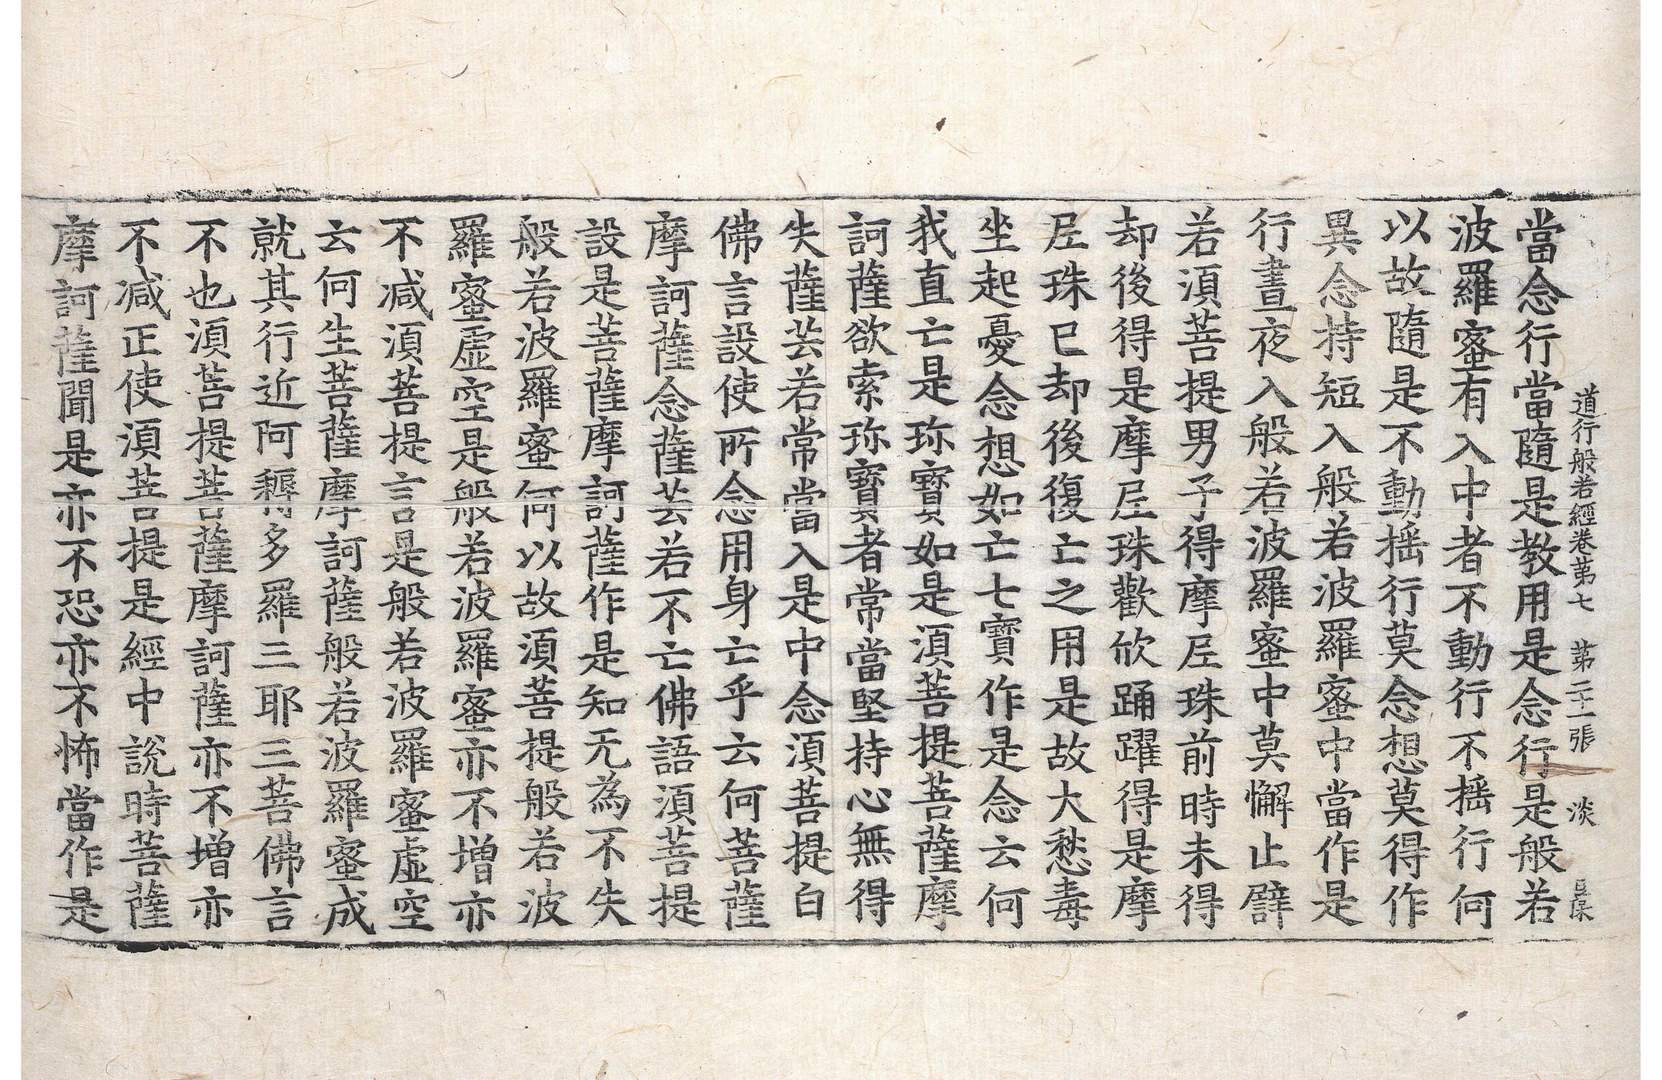 道行般若經卷第七 第二十一張 淡
當念行當隨是教用是念行是般若
波羅蜜有入中者不動行不揺行何
以故隨是不動揺行莫念想莫得作
異念持短入般若波羅蜜中當作是
行晝夜入般若波羅蜜中莫懈止譬
若湏菩提男子得摩尼珠前時未得
却後得是摩尼珠歡欣踊躍得是摩
尼珠已却後復亡之用是故大愁毒
坐起憂念想如亡七寶作是念云何
我直亡是珎寶如是湏菩提菩薩摩
訶薩欲索珎寶者常當堅持心無得
失薩芸若常當入是中念湏菩提白
佛言設使所念用身亡乎云何菩薩
摩訶薩念薩芸若不亡佛語湏菩提
設是菩薩摩訶薩作是知无為不失
般若波羅蜜何以故湏菩提般若波
羅蜜虛空是般若波羅蜜亦不增亦
不减湏菩提言是般若波羅蜜虛空
云何生菩薩摩訶薩般若波羅蜜成
就其行近阿耨多羅三耶三菩佛言
不也湏菩提菩薩摩訶薩亦不增亦
不减正使湏菩提是經中說時菩薩
摩訶薩聞是亦不恐亦不怖當作是